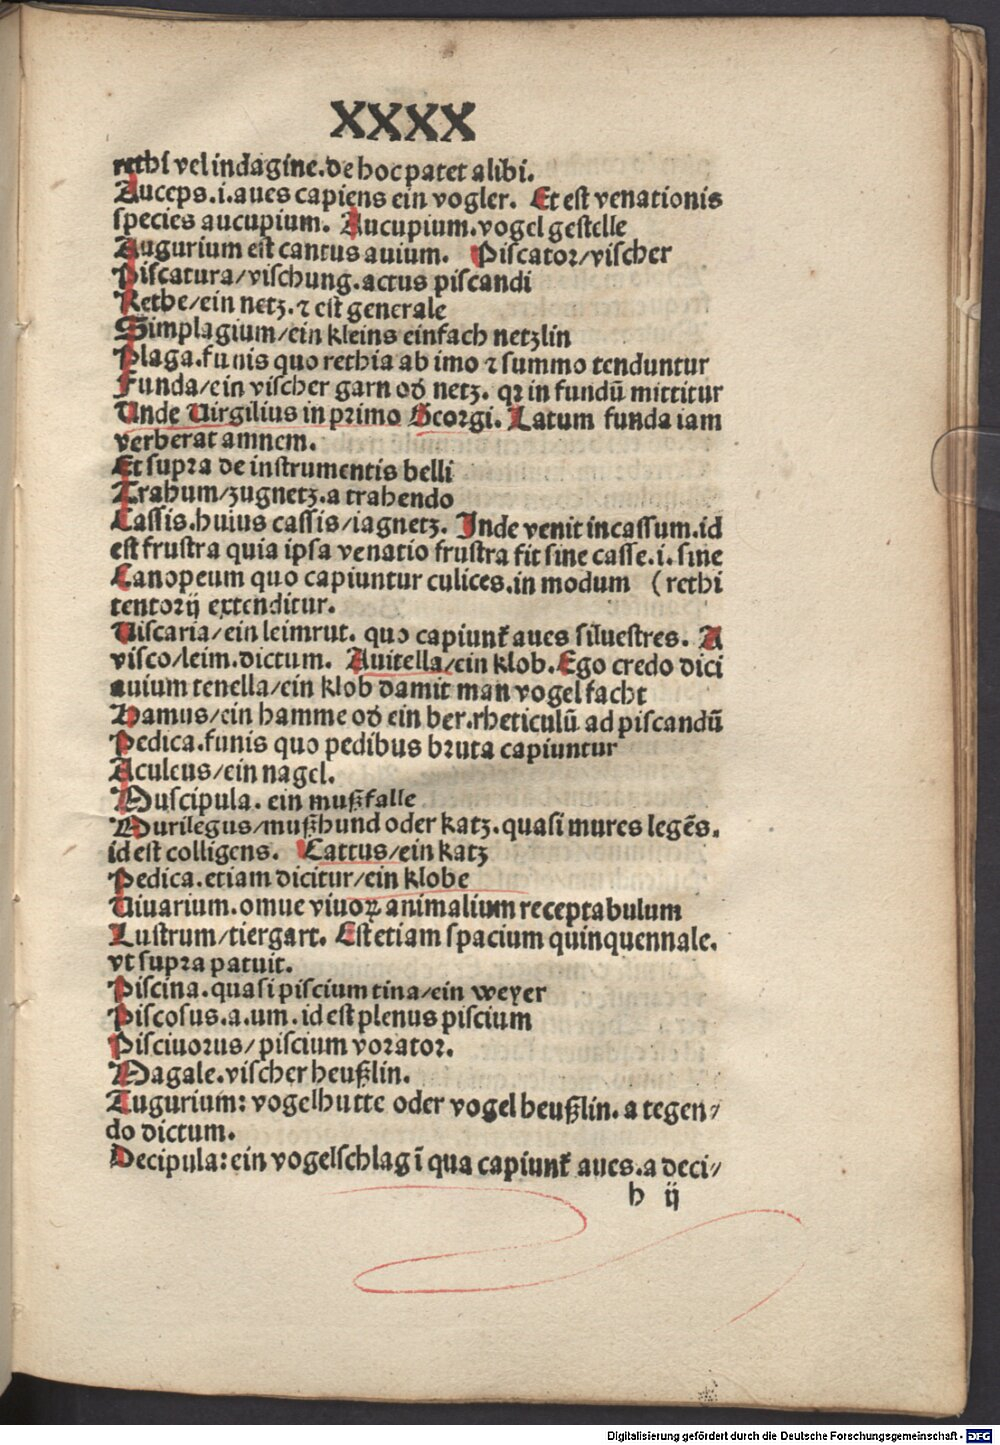 XXXX
rethi vel indagine.de hoc patet alibi.
Auceps.i.aues capiens ein vogler. Et est venationis
species aucupium. Aucupium.vogel gestelle
Augurium est cantus auium. Piscator/vischer
Piscatura/vischung.actus piscandi
Rethe/ein netz.⁊ est generale
Simplagium/ein kleins einfach netzlin
Plaga.funis quo rethia ab imo ⁊ summo tenduntur
Funda/ein vischer garn od̄ netz. qꝛ in fundū mittitur
Unde Uirgilius in primo Georgi. Latum funda iam
verberat amnem.
Et supra de instrumentis belli
Trahum/zugnetz.a trahendo
Cassis.huius cassis/iagnetz. Inde venit incassum.id
est frustra quia ipsa venatio frustra fit sine casse.i.sine
Canopeum quo capiuntur culices.in modum (rethi
tentorij extenditur.
Uiscaria/ein leimrut. quo capiunt̄ aues siluestres. A
visco/leim.dictum. Auitella/ein klob.Ego credo dici
auium tenella/ein klob damit man vogel facht
Hamus/ein hamme od̄ ein ber.rheticulū ad piscandū
Pedica.funis quo pedibus bruta capiuntur
Aculeus/ein nagel.
Muscipula. ein mußfalle
Murilegus/mußhund oder katz.quasi mures legēs.
id est colligens. Cattus/ein katz
Pedica.etiam dicitur/ein klobe
Uiuarium.omue viuoꝝ animalium receptabulum
Lustrum/tiergart. Est etiam spacium quinquennale.
vt supra patuit.
Piscina.quasi piscium tina/ein weyer
Piscosus.a.um.id est plenus piscium
Pisciuorus/piscium vorator.
Magale.vischer heußlin.
Tugurium: vogelhutte oder vogel heußlin. a tegen/
do dictum.
Decipula: ein vogelschlag ī qua capiunt̄ aues.a deci/
h ij
Digitalisierung gefördert durch die Deutsche Forschungsgemeinschaft - DFG